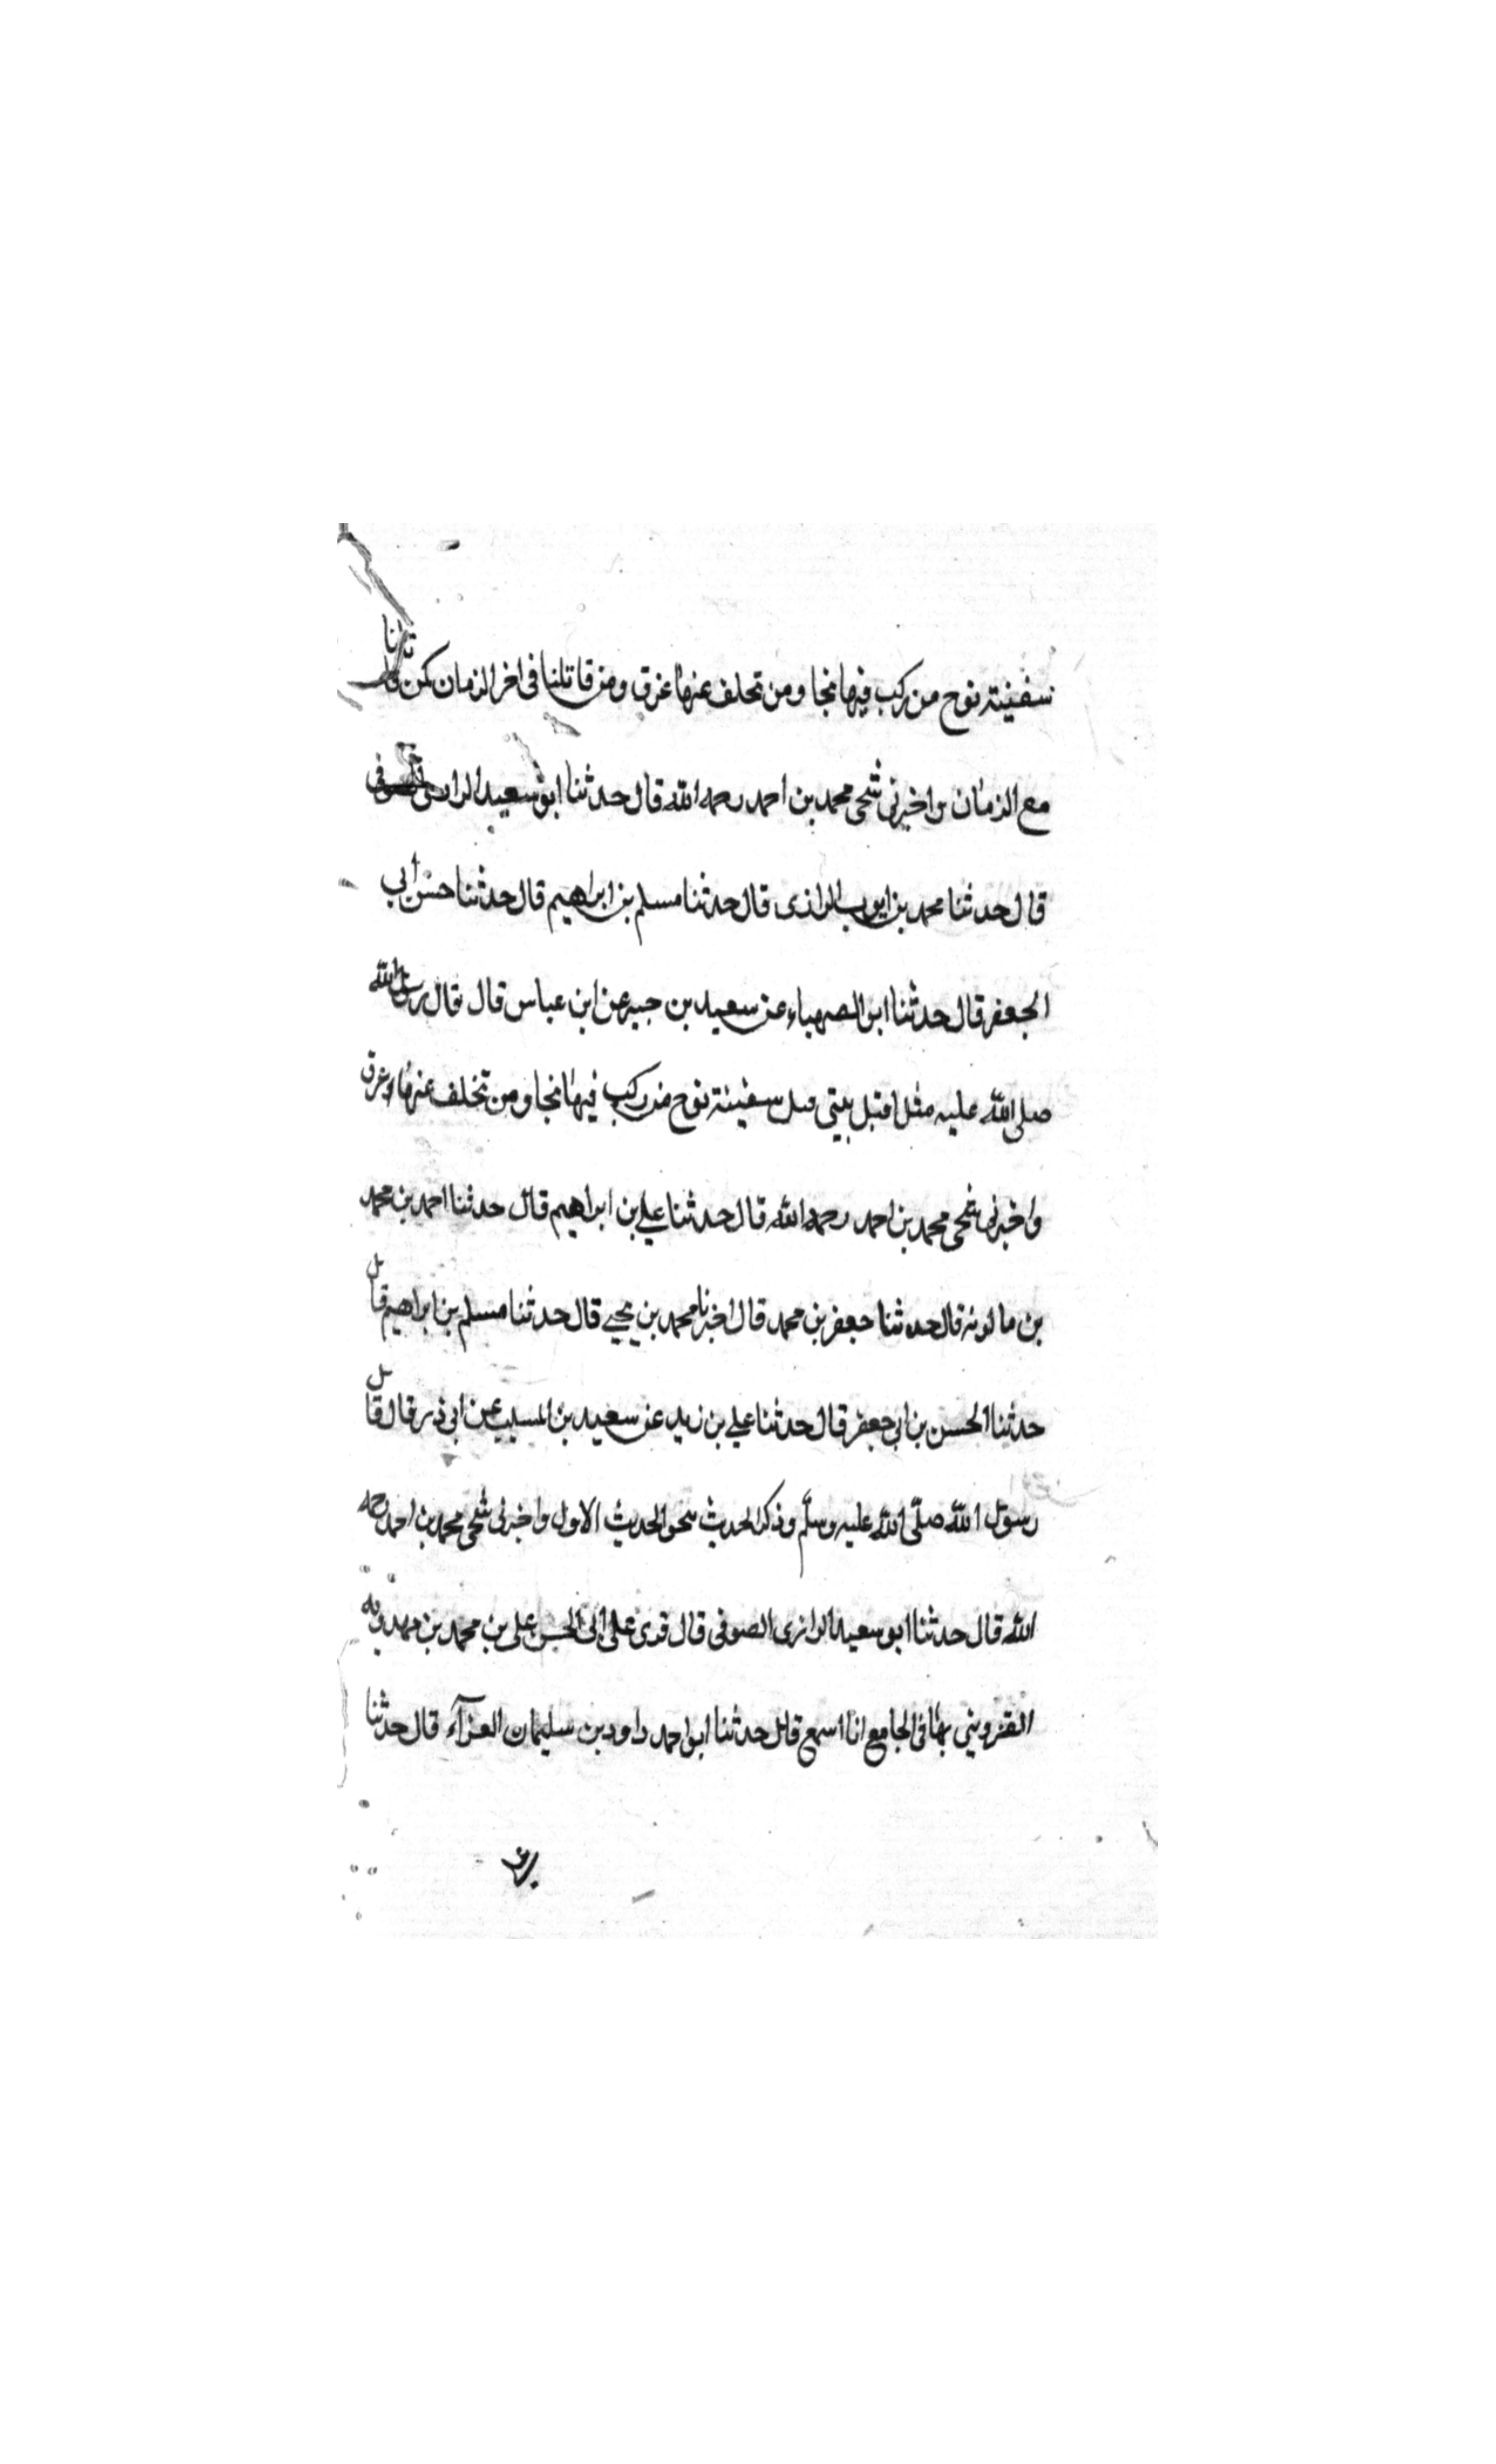 سفينة نوح من ركب فيها نجا ومن تخلف عنها غرق ومن قاتلنا في اخر الزمان كمن قاتلنا
مع الزمان اخبرني شيخي محمد بن احمد رحمه الله قال حدثنا ابو سعيد الرازي الصوفي
قال حدثنا محمد بن ايوب الرازي قال حدثنا مسلم بن ابراهيم قال حدثنا حسن ابي
الجعفر قال حدثنا ابو الصهباء عن سعيد بن جبير عن ابن عباس قال قال رسول الله
صلى الله عليه مثل بيتي مثل سفينة نوح من ركب فيها نجا ومن تخلف عنها غرق
واخبرني شيخي محمد بن احمد رحمه الله قال حدثنا علي بن ابراهيم قال حدثنا احمد بن محمد
بن قال حدثنا جعفر بن محمد قال اخبرنا محمد بن يحيى قال حدثنا مسلم بن ابراهيم قال
حدثنا الحسن بن ابي جعفر قال حدثنا علي بن زيد عن سعيد بن المسيب عن ابي ذر قال قال
رسول الله صلى الله عليه وسلم وذكر الحديث نحو الحديث الاول واخبرني شيخي محمد بن احمد رحمه
الله قال حدثنا ابو سعيد الرازي الصوفي قال قرئ على ابي الحسن علي بن محمد بن مهرويه
القزويني بها في الجامع انا اسمع قال حدثنا ابو احمد داود بن سليمان الغزآء قال حدثنا